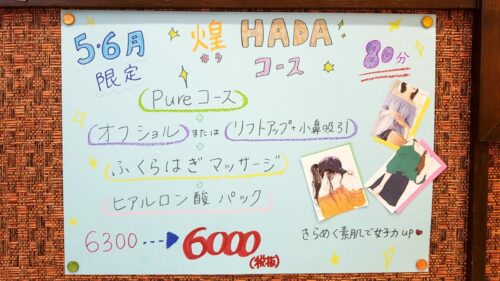 5・6月
限定
煌 HADA
キラ
コース
80分
Pureコース
+
オフショル または リフトアップ+小鼻吸引
+
ふくらはぎマッサージ
+
ヒアルロン酸パック
6300 ---▶ 6000
(税抜)
きらめく素肌で女子力up♥